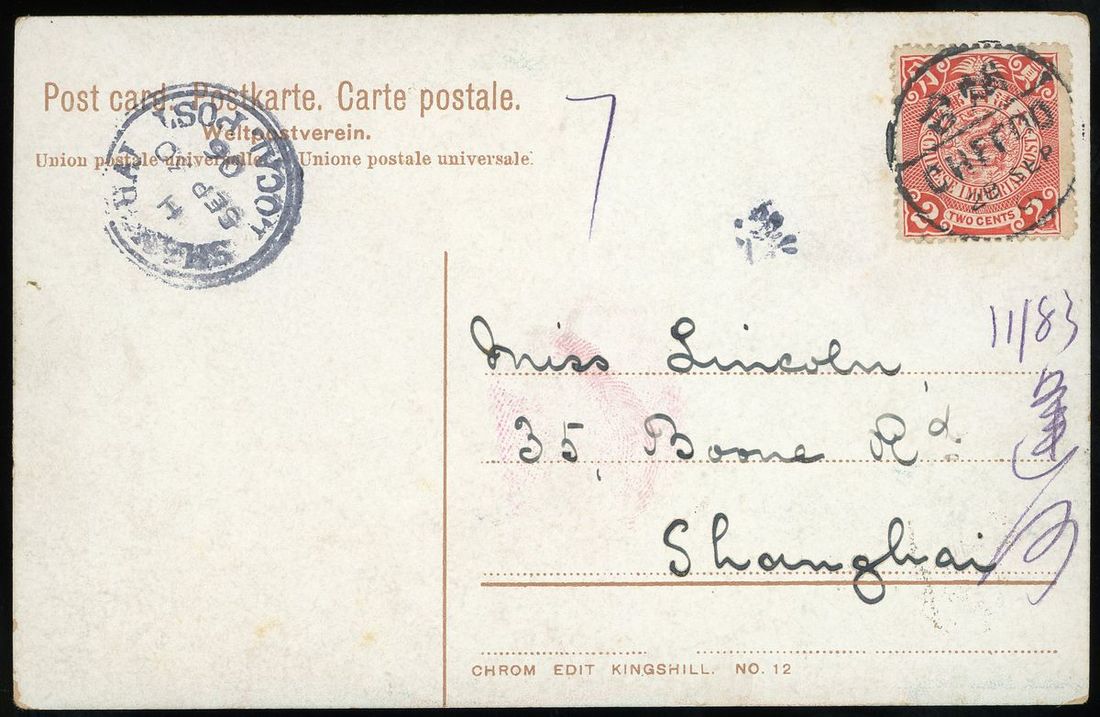 Post card. Postkarte. Carte postale.
Weltpostverein.
Union postale universelle. Unione postale universale.
LOCAL POST
SHANGHAI
H
SEP
10
06
7
CHEFOO
2
TWO CENTS
2
Miss Lincoln
35, Boone Rd
Shanghai
11/83
CHROM EDIT KINGSHILL. NO. 12